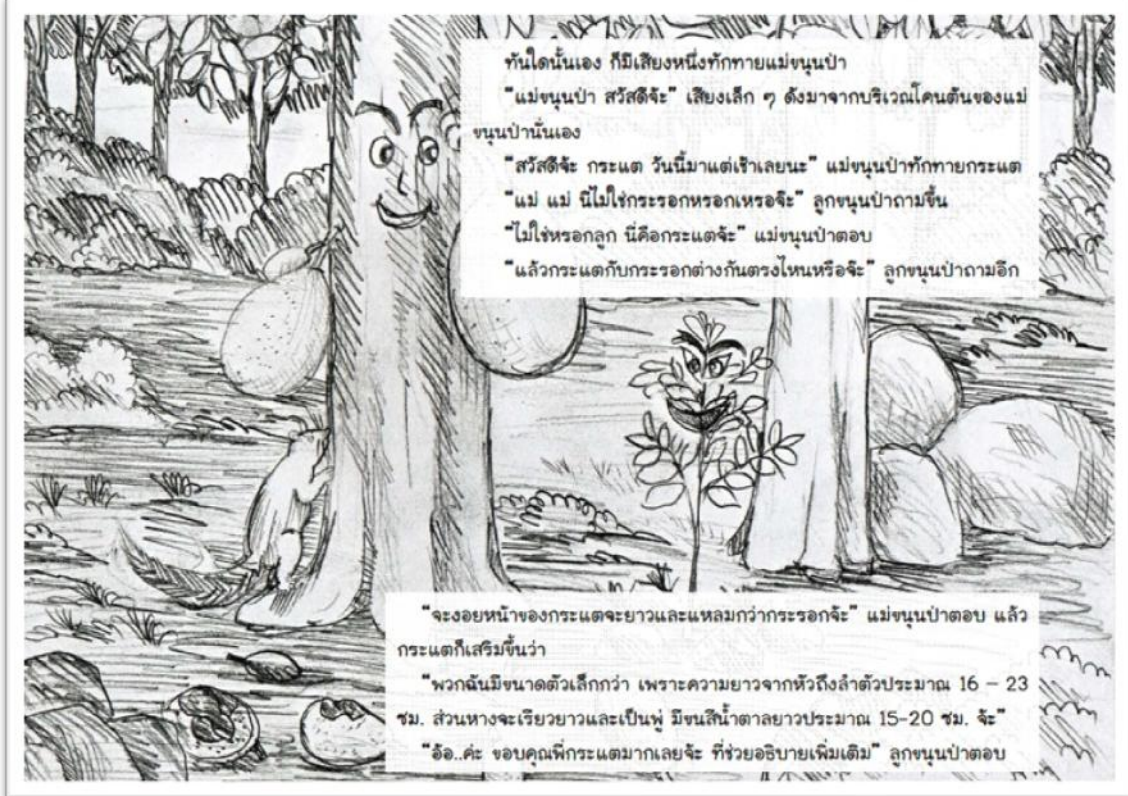 ทันใดนั้นเอง ก็มีเสียงหนึ่งทักทายแม่ขนุนป่า
“แม่ขนุนป่า สวัสดีจ้ะ” เสียงเล็ก ๆ ดังมาจากบริเวณโคนต้นของแม่
ขนุนป่านั่นเอง
“สวัสดีจ้ะ กระแต วันนี้มาแต่เช้าเลยนะ” แม่ขนุนป่าทักทายกระแต
“แม่ แม่ นี่ไม่ใช่กระรอกหรอกเหรอจ๊ะ” ลูกขนุนป่าถามขึ้น
“ไม่ใช่หรอกลูก นี่คือกระแตจ้ะ” แม่ขนุนป่าตอบ
“แล้วกระแตกับกระรอกต่างกันตรงไหนหรือจ๊ะ” ลูกขนุนป่าถามอีก
“จะงอยหน้าของกระแตจะยาวและแหลมกว่ากระรอกจ้ะ” แม่ขนุนป่าตอบ แล้ว
กระแตก็เสริมขึ้นว่า
“พวกฉันมีขนาดตัวเล็กกว่า เพราะความยาวจากหัวถึงลำตัวประมาณ 16 – 23
ซม. ส่วนหางจะเรียวยาวและเป็นพู่ มีขนสีน้ำตาลยาวประมาณ 15-20 ซม. จ้ะ”
“อ้อ..ค่ะ ขอบคุณพี่กระแตมากเลยจ้ะ ที่ช่วยอธิบายเพิ่มเติม” ลูกขนุนป่าตอบ